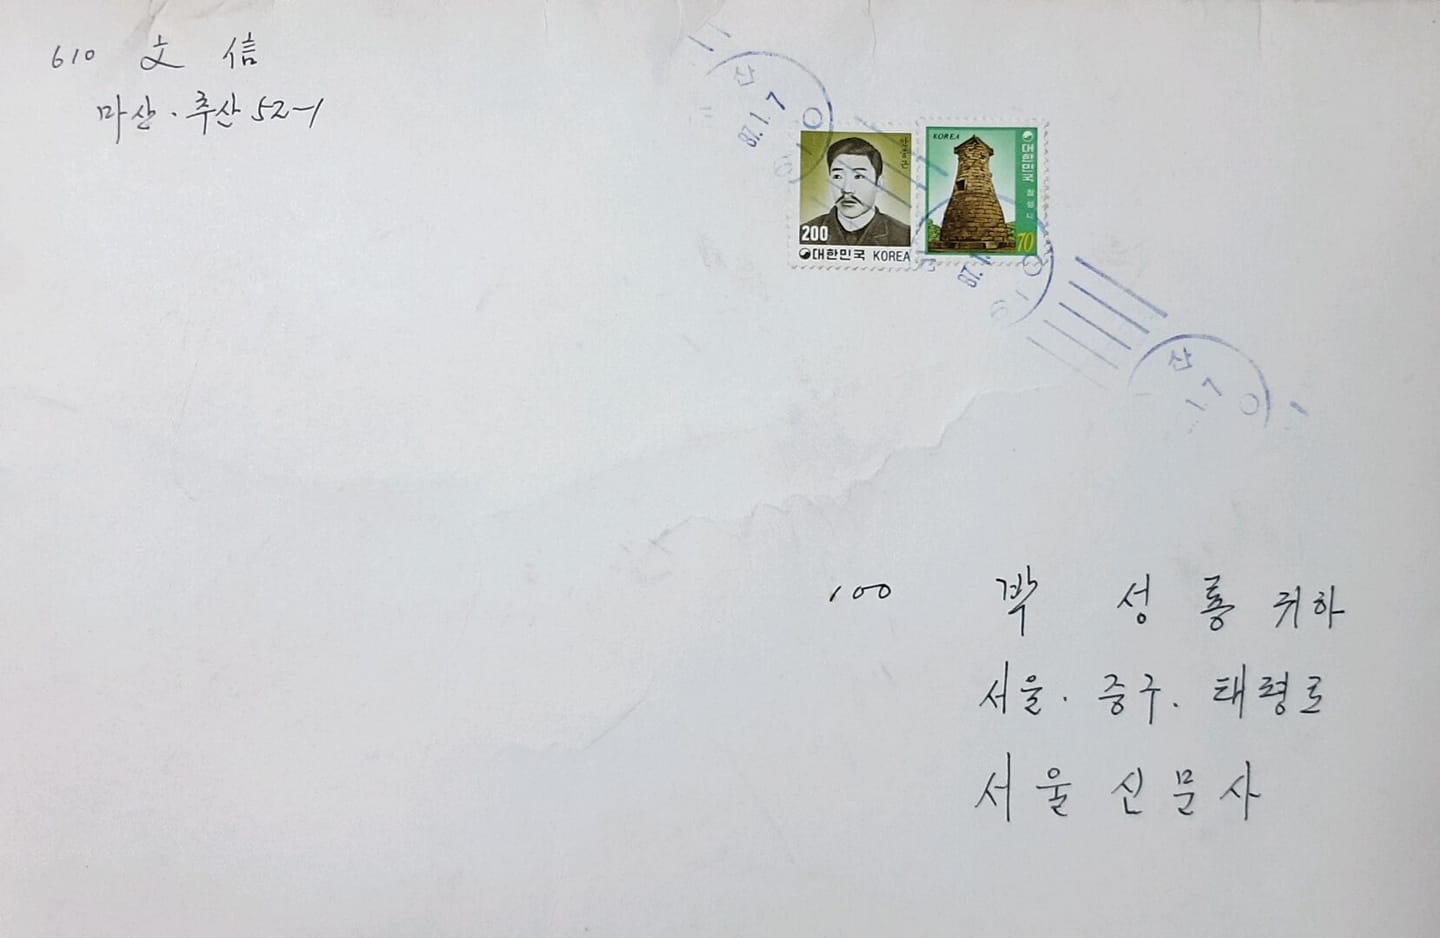 610 文 信
마산 · 추산 52-1
산
87.1.7
안중근
200
대한민국 KOREA
KOREA
대한민국 첨성대
70
87.1.
산
1.7
100 박 성 룡 귀하
서울 · 중구 · 태평로
서울 신문사